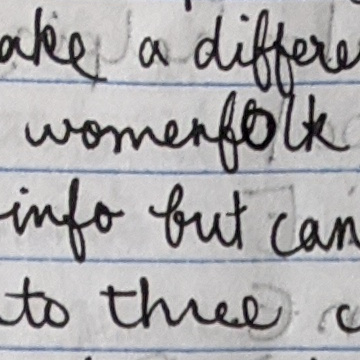 ake a differe
womenfolk
info but can
to three c